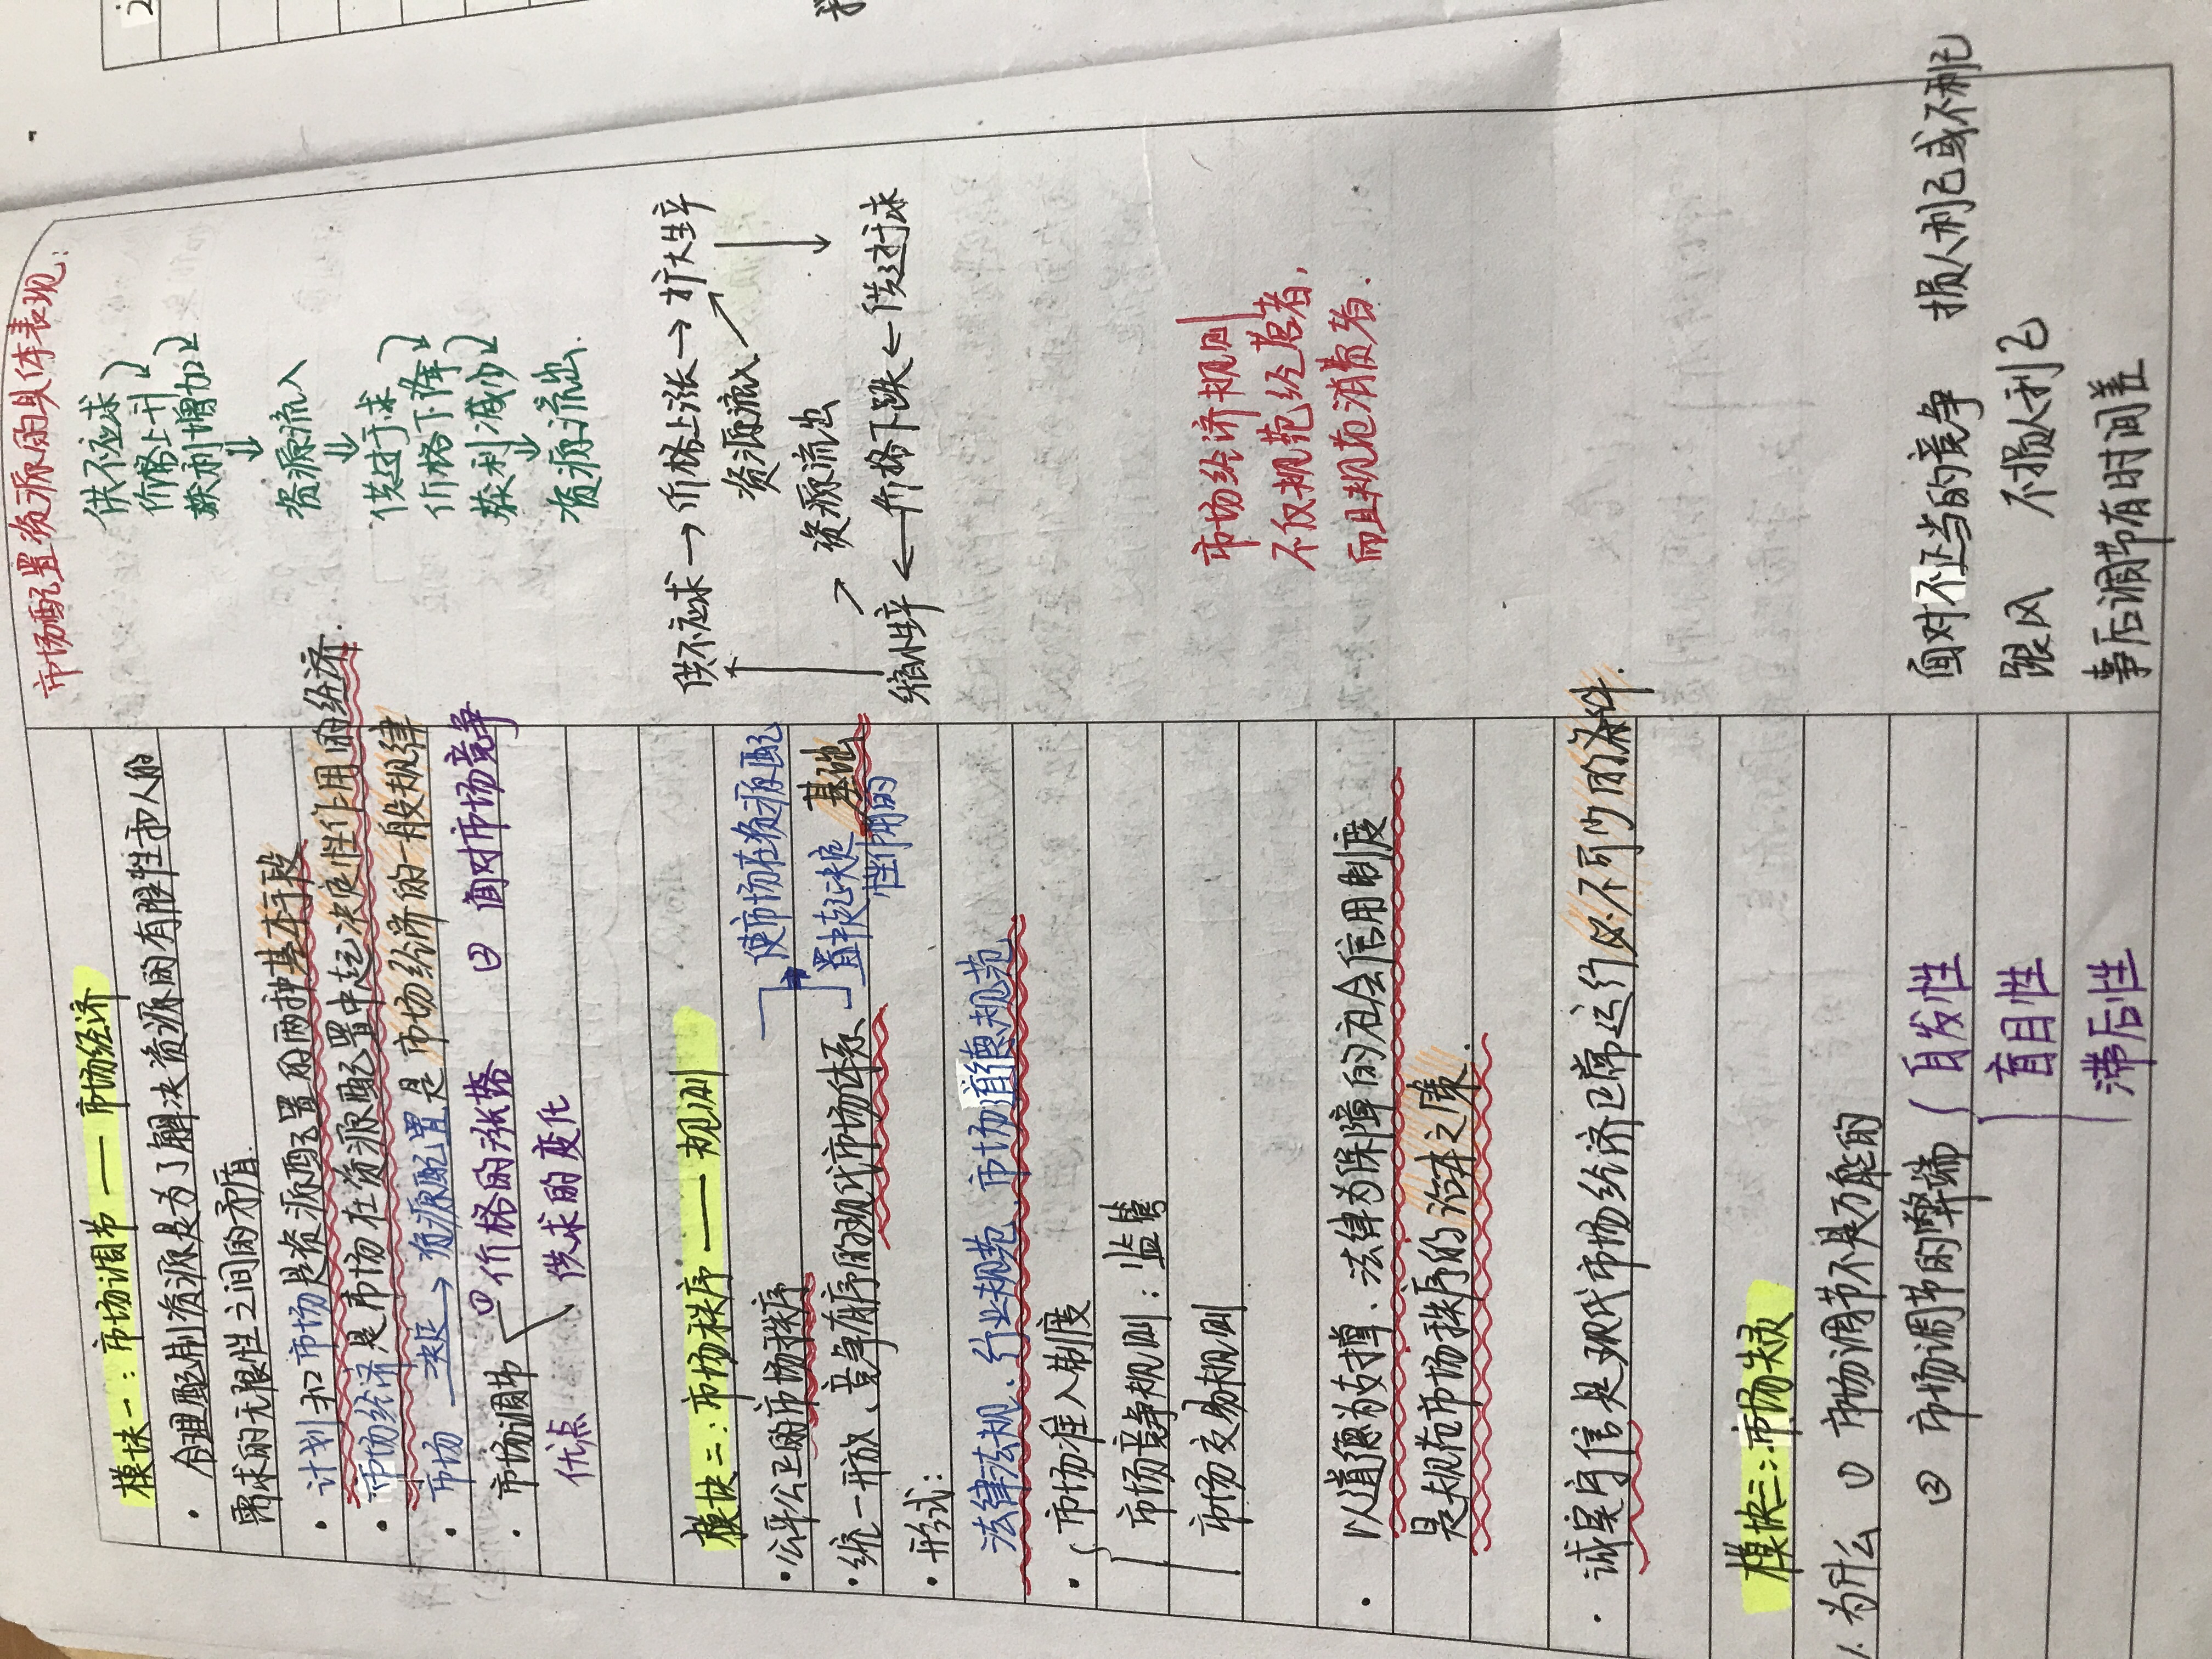 模块一：市场调节 —— 市场经济
· 合理配制资源是为了解决资源的有限性和人的
需求的无限性之间的矛盾.
· 计划和市场是资源配置的两种基本手段
· 市场经济是市场在资源配置中起决定性作用的经济.
· 市场 决定→ 资源配置是市场经济的一般规律
· 市场调节 ① 价格的涨落 ② 面对市场竞争
优点 供求的变化
模块二：市场秩序 —— 规则
· 公平公正的市场秩序
· 统一开放、竞争有序的现代市场体系
使市场在资源配
置中起决定 基础
性作用的
· 形式：
法律法规、行业规范、市场道德规范
· 市场准入制度
市场竞争规则：监管
市场交易规则
· 以道德为支撑、法律为保障的社会信用制度
是规范市场秩序的治本之策.
· 诚实守信是现代市场经济正常运行必不可少的条件.
模块三：市场失灵
1. 为什么 ① 市场调节不是万能的
② 市场调节的弊端 自发性
盲目性
滞后性
市场配置资源的具体表现：
供不应求
价格上升
获利增加
⇓
资源流入
⇓
供过于求
价格下降
获利减少
↓
资源流出.
供不应求 → 价格上涨 → 扩大生产
资源流入
资源流出
缩小生产 ← 价格下跌 ← 供过于求
市场经济规则
不仅规范经营者,
而且规范消费者.
面对不正当的竞争 损人利己或不利己
跟风 不损人利己
事后调节有时间差